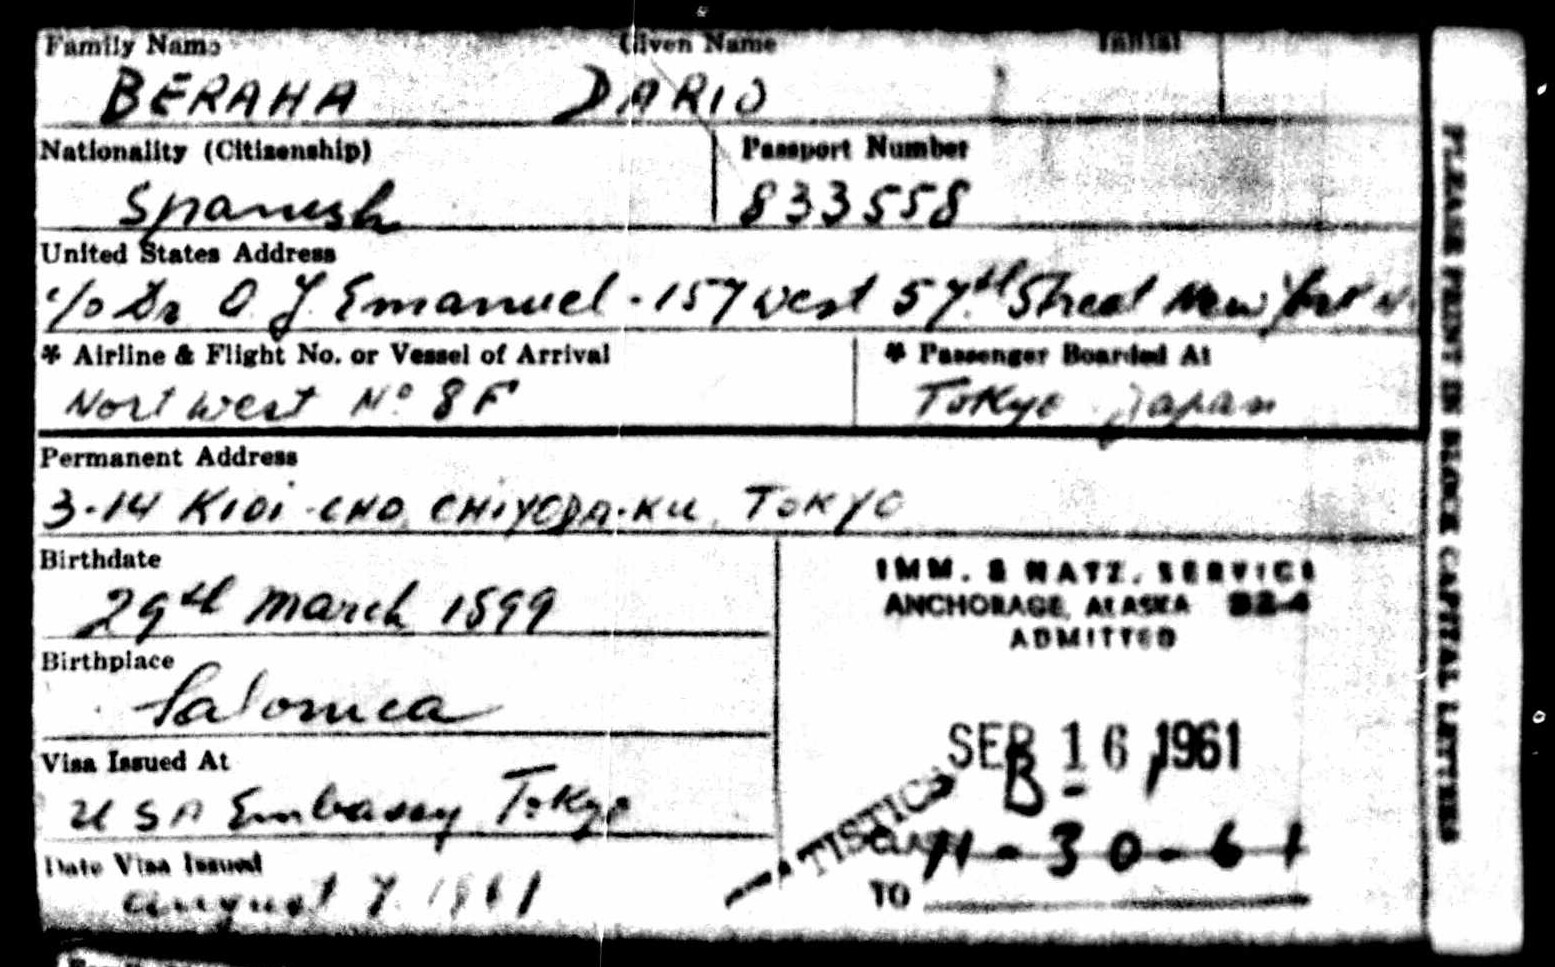 Family Name Given Name Initial
BERAHA DARIO
Nationality (Citizenship) Passport Number
Spanish 833558
United States Address
c/o Dr O. J. Emanuel - 157 West 57th Street New York N.
* Airline & Flight No. or Vessel of Arrival * Passenger Boarded At
Nortwest No 8F Tokyo Japan
Permanent Address
3-14 KIOI-CHO CHIYODA-KU, TOKYO
Birthdate
29th march 1899
Birthplace
Salonica
Visa Issued At
USA Embassy Tokyo
Date Visa Issued
august 7. 1961
IMM. & NATZ. SERVICE
ANCHORAGE, ALASKA
ADMITTED
SEP 16 1961
B-1
11-30-61
TO
PLEASE PRINT IN BLOCK CAPITAL LETTERS